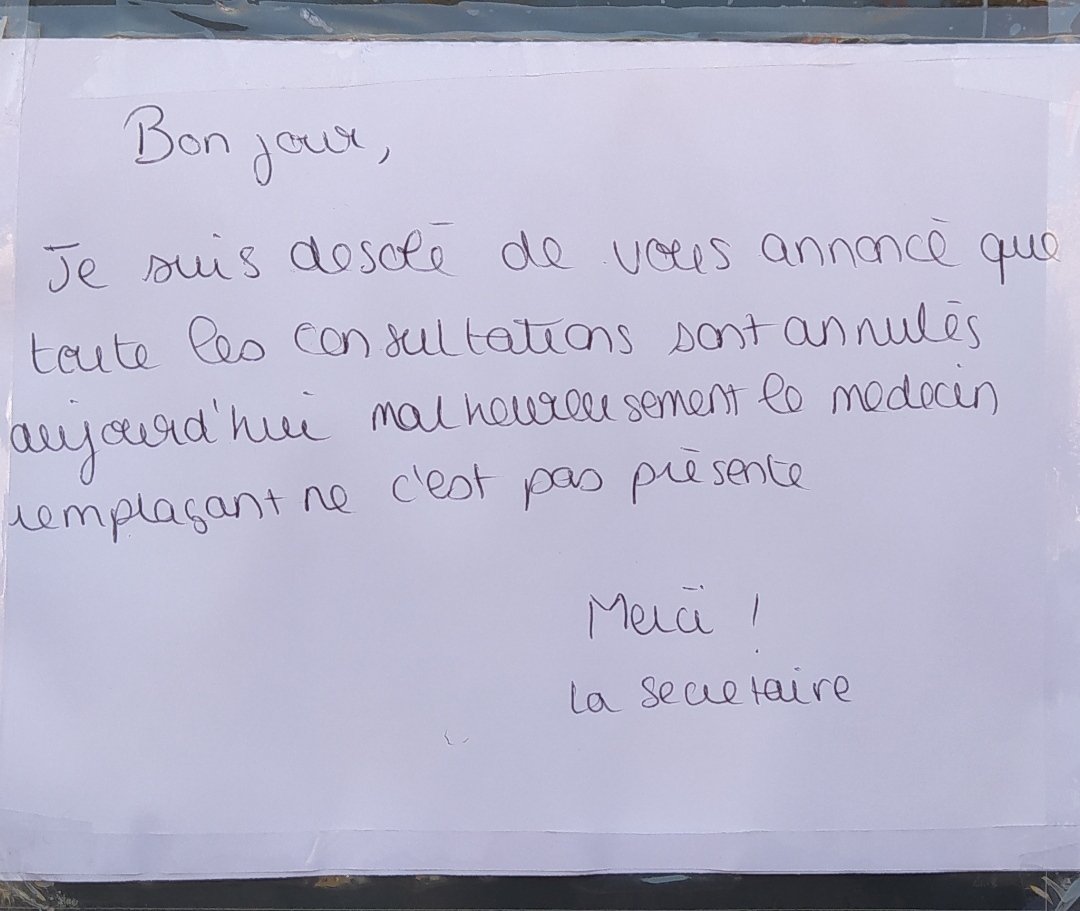 Bonjour,
Je suis desolé de vous annoncé que
toute les consultations sont annulés
aujourd'hui malheureusement le medecin
remplaçant ne c'est pas présente
Merci !
la secretaire